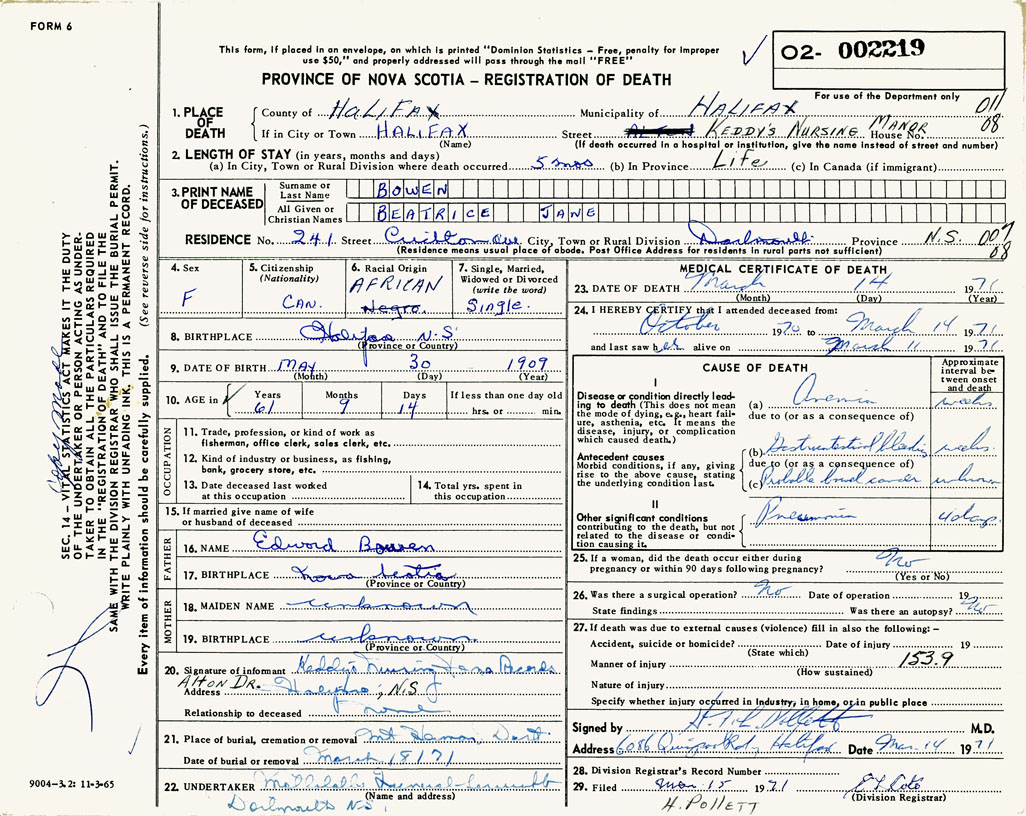 FORM 6
This form, if placed in an envelope, on which is printed "Dominion Statistics – Free, penalty for improper
use $50," and properly addressed will pass through the mail "FREE"
PROVINCE OF NOVA SCOTIA – REGISTRATION OF DEATH
02- 002219
For use of the Department only
011
08
1. PLACE OF DEATH
County of HALIFAX Municipality of HALIFAX
If in City or Town HALIFAX Street KEDDY'S NURSING MANOR House No.
(Name) (If death occurred in a hospital or institution, give the name instead of street and number)
2. LENGTH OF STAY (in years, months and days)
(a) In City, Town or Rural Division where death occurred 5 mos (b) In Province Life (c) In Canada (if immigrant)
3. PRINT NAME OF DECEASED
Surname or Last Name BOWEN
All Given or Christian Names BEATRICE JANE
RESIDENCE No. 241 Street City, Town or Rural Division Dartmouth Province N.S. 007
08
(Residence means usual place of abode. Post Office Address for residents in rural parts not sufficient)
4. Sex
F
5. Citizenship
(Nationality)
CAN.
6. Racial Origin
AFRICAN
Negro.
7. Single, Married,
Widowed or Divorced
(write the word)
Single.
8. BIRTHPLACE Halifax N.S.
(Province or Country)
9. DATE OF BIRTH MAY 30 1909
(Month) (Day) (Year)
10. AGE in
Years Months Days If less than one day old
61 9 14 hrs. or min.
OCCUPATION
11. Trade, profession, or kind of work as
fisherman, office clerk, sales clerk, etc.
12. Kind of industry or business, as fishing,
bank, grocery store, etc.
13. Date deceased last worked
at this occupation
14. Total yrs. spent in
this occupation
15. If married give name of wife
or husband of deceased
FATHER
16. NAME Edward Bowen
17. BIRTHPLACE Nova Scotia
(Province or Country)
MOTHER
18. MAIDEN NAME unknown
19. BIRTHPLACE unknown
(Province or Country)
20. Signature of informant Keddy's Nursing Records
ALTON DR.
Address Halifax, N.S.
Relationship to deceased none
21. Place of burial, cremation or removal Mt Hermon, Dart
Date of burial or removal March 18/71
22. UNDERTAKER Funeral
(Name and address)
Dartmouth N.S.
MEDICAL CERTIFICATE OF DEATH
23. DATE OF DEATH March 14 1971
(Month) (Day) (Year)
24. I HEREBY CERTIFY that I attended deceased from:
October 1970 to March 14 1971
and last saw her alive on March 11 1971
CAUSE OF DEATH
Approximate
interval be-
tween onset
and death
I
Disease or condition directly lead-
ing to death (This does not
mean the mode of dying, e.g., heart fail-
ure, asthenia, etc. It means the
disease, injury, or complication
which caused death.)
(a) Anemia weeks
due to (or as a consequence of)
Antecedent causes
Morbid conditions, if any, giving
rise to the above cause, stating
the underlying condition last.
(b) Gastrointestinal bleeding weeks
due to (or as a consequence of)
(c) Probable bowel cancer unknown
II
Other significant conditions
contributing to the death, but not
related to the disease or condi-
tion causing it.
Pneumonia 4 days
25. If a woman, did the death occur either during
pregnancy or within 90 days following pregnancy? No
(Yes or No)
26. Was there a surgical operation? No Date of operation 19
State findings Was there an autopsy? No
27. If death was due to external causes (violence) fill in also the following: –
Accident, suicide or homicide? Date of injury 19
(State which)
153.9
Manner of injury
(How sustained)
Nature of injury
Specify whether injury occurred in industry, in home, or in public place
Signed by Pollett M.D.
Address 6086 Quinpool Rd, Halifax Date Mar. 14 1971
28. Division Registrar's Record Number
29. Filed Mar. 15 1971
(Division Registrar)
H. POLLETT
SEC. 14 – VITAL STATISTICS ACT MAKES IT THE DUTY
OF THE UNDERTAKER OR PERSON ACTING AS UNDER-
TAKER TO OBTAIN ALL THE PARTICULARS REQUIRED
IN THE "REGISTRATION OF DEATH" AND TO FILE THE
SAME WITH THE DIVISION REGISTRAR WHO SHALL ISSUE THE BURIAL PERMIT.
WRITE PLAINLY WITH UNFADING INK. THIS IS A PERMANENT RECORD.
Every item of information should be carefully supplied. (See reverse side for instructions.)
9004-3.2: 11-3-65